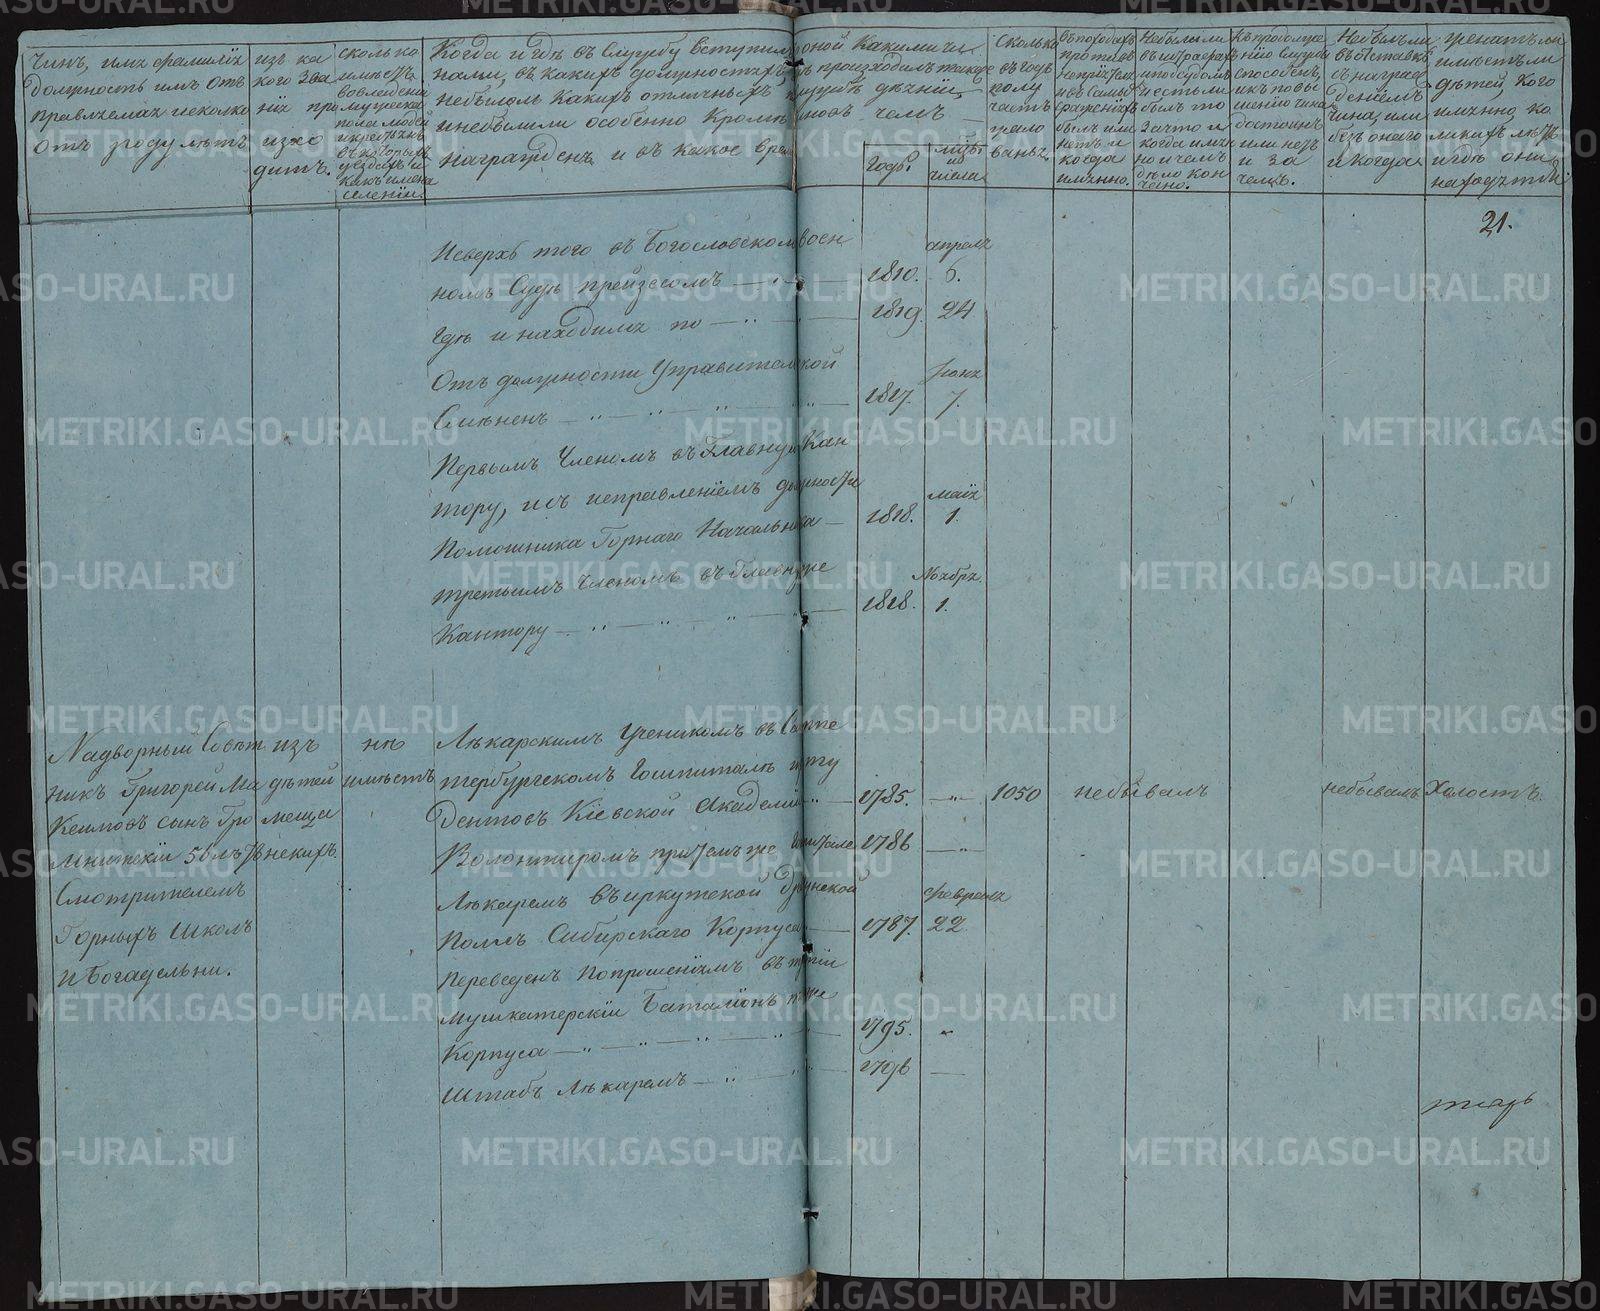 Чинъ, имя фамилія
должность имъ отъ
правляемая и сколько
отъ роду летъ
изъ ка
кого зва
нія про
изхо
дитъ.
сколько
имеетъ
во владеніи
мужеска
пола людей
и крестьянъ
въ которыхъ
уездахъ и
какъ имена
селеніи.
Когда и где въ службу вступилъ и въ оной какими чи
нами, въ какихъ должностяхъ и где происходилъ также
небылоль какихъ отличныхъ по службе деяній
и небылъли особенно кроме чиновъ чемъ
награжденъ и въ какое время
Годы.
м:цы
и
числа
Сколько
въ годъ
полу
чаетъ
жало
ванья.
въ походахъ
противъ
непріятеля
и въ самыхъ
сраженіяхъ
былъ или
нетъ и
когда
имянно.
Небылъли
въ штрафахъ
и подсудомъ
и естьли
былъ то
за что и
когда имян
но и чемъ
дело кон
чено.
Къ продолже
нію службы
способенъ
и къ повы
шенію чина
достоинъ
или нетъ
и за
чемъ.
Небылъли
въ отставке
съ награж
деніемъ
чина или
безъ онаго
и когда
женатъ ли
имеетъ ли
детей, кого
имянно, ка
кихъ летъ
и где они
находятся
21.
Исверхъ того въ Богословскомъ воен
номъ Суде презессомъ — „ —
апреля
1810. 6.
где и находился по — „ —
1819. 24
Отъ должности Управительской
Смененъ — „ — „ — „ —
Іюня
1817. 7.
Первымъ Членомъ въ Главную Кан
тору, и съ исправленіемъ должности
Помошника Горнаго Начальника —
маія
1818. 1.
третьимъ Членомъ въ Главную же
Кантору — „ — „ — „ —
Ноября
1818. 1.
Надворный Совет
никъ Григорей Ма
ксимовъ сынъ Гро
мнитскій 50 летъ
Смотрителемъ
Горныхъ школъ
и Богадельни.
изъ
детей
меща
нскихъ.
не
имеетъ
Лекарскимъ ученикомъ въ Санкпе
тербургскомъ Гошпитале изъ сту
дентовъ Кіевской Академіи „ —
1785. — „ —
1050
небывалъ
небывалъ
Холостъ.
Волонтиромъ притомъ же гошпитале
1786 — „ —
Лекаремъ въ иркутской драгунской
Полкъ Сибирскаго Корпуса —
февраля
1787. 22
Переведенъ по прошеніямъ въ
мушкатерскій Баталіонъ того же
Корпуса — „ — „ — „ — „ —
1795. „
Штабъ Лекаремъ — „ — „ —
1796 —